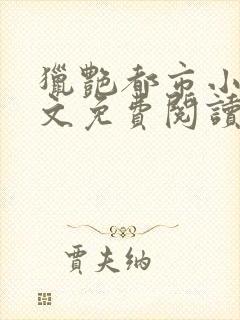 獵艷都市小
文免費閱讀
賈夫納